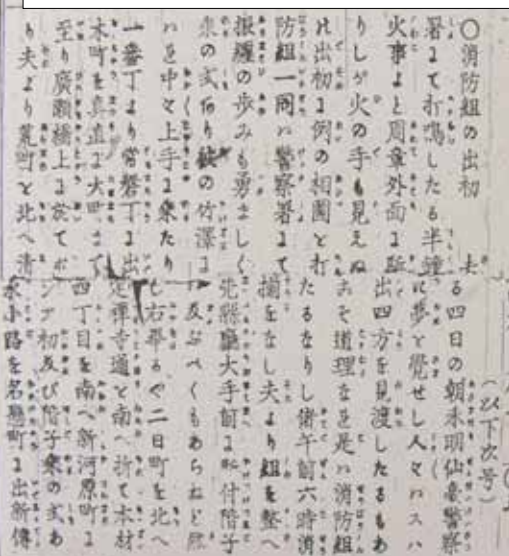 (以下次号)
○消防組の出初 去る四日の朝未明仙臺警察
署にて打鳴したる半鐘に夢を覺せし人々ハスハ
火事よと周章外面に馳出四方を見渡したるもあ
りしが火の手も見えぬこそ道理なる是ハ消防組
の出初に例の相圖を打たるなりし偖午前六時消
防組一同ハ警察署にて揃をなし夫より組を整へ
振纏の歩みも勇ましく先縣廳大手前に馳付階子
乗の式有り彼の竹澤にハ及ぶべくもあらねど然
いを中々上手に乗たりし右畢るや二日町を北へ
一番丁より常磐丁に出定禪寺通を南へ折て本材
木町を真直に大町まで四丁目を南へ新河原町に
至り廣瀬橋上に於てポンプ初及び階子乗の式あ
り夫より荒町を北へ清水小路を名懸町に出新傳